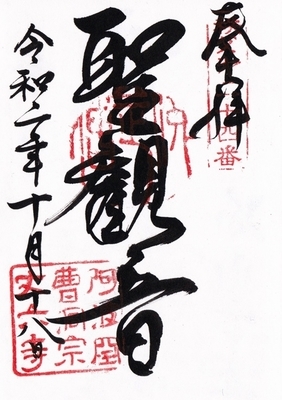 奉拝
聖観音
令和二年十月十八日
四番
阿波国
曹洞宗